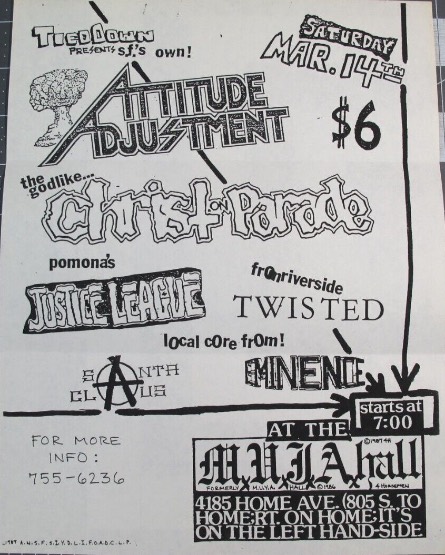 TIED DOWN
PRESENTS s.f.'s own!
SATURDAY
MAR. 14TH
ATTITUDE
ADJUSTMENT
$6
the
godlike...
Christ on Parade
pomona's
JUSTICE LEAGUE
from riverside
TWISTED
local core from!
SANTH
CLAUS
EMINENCE
starts at
7:00
AT THE
FOR MORE
INFO:
755-6236
©1987 4H
M.U.Y.A. hall
FORMERLY M.U.Y.A. HALL ©1986 4 HORSEMEN
4185 HOME AVE. (805 S. TO
HOME: RT. ON HOME: IT'S
ON THE LEFT HAND-SIDE